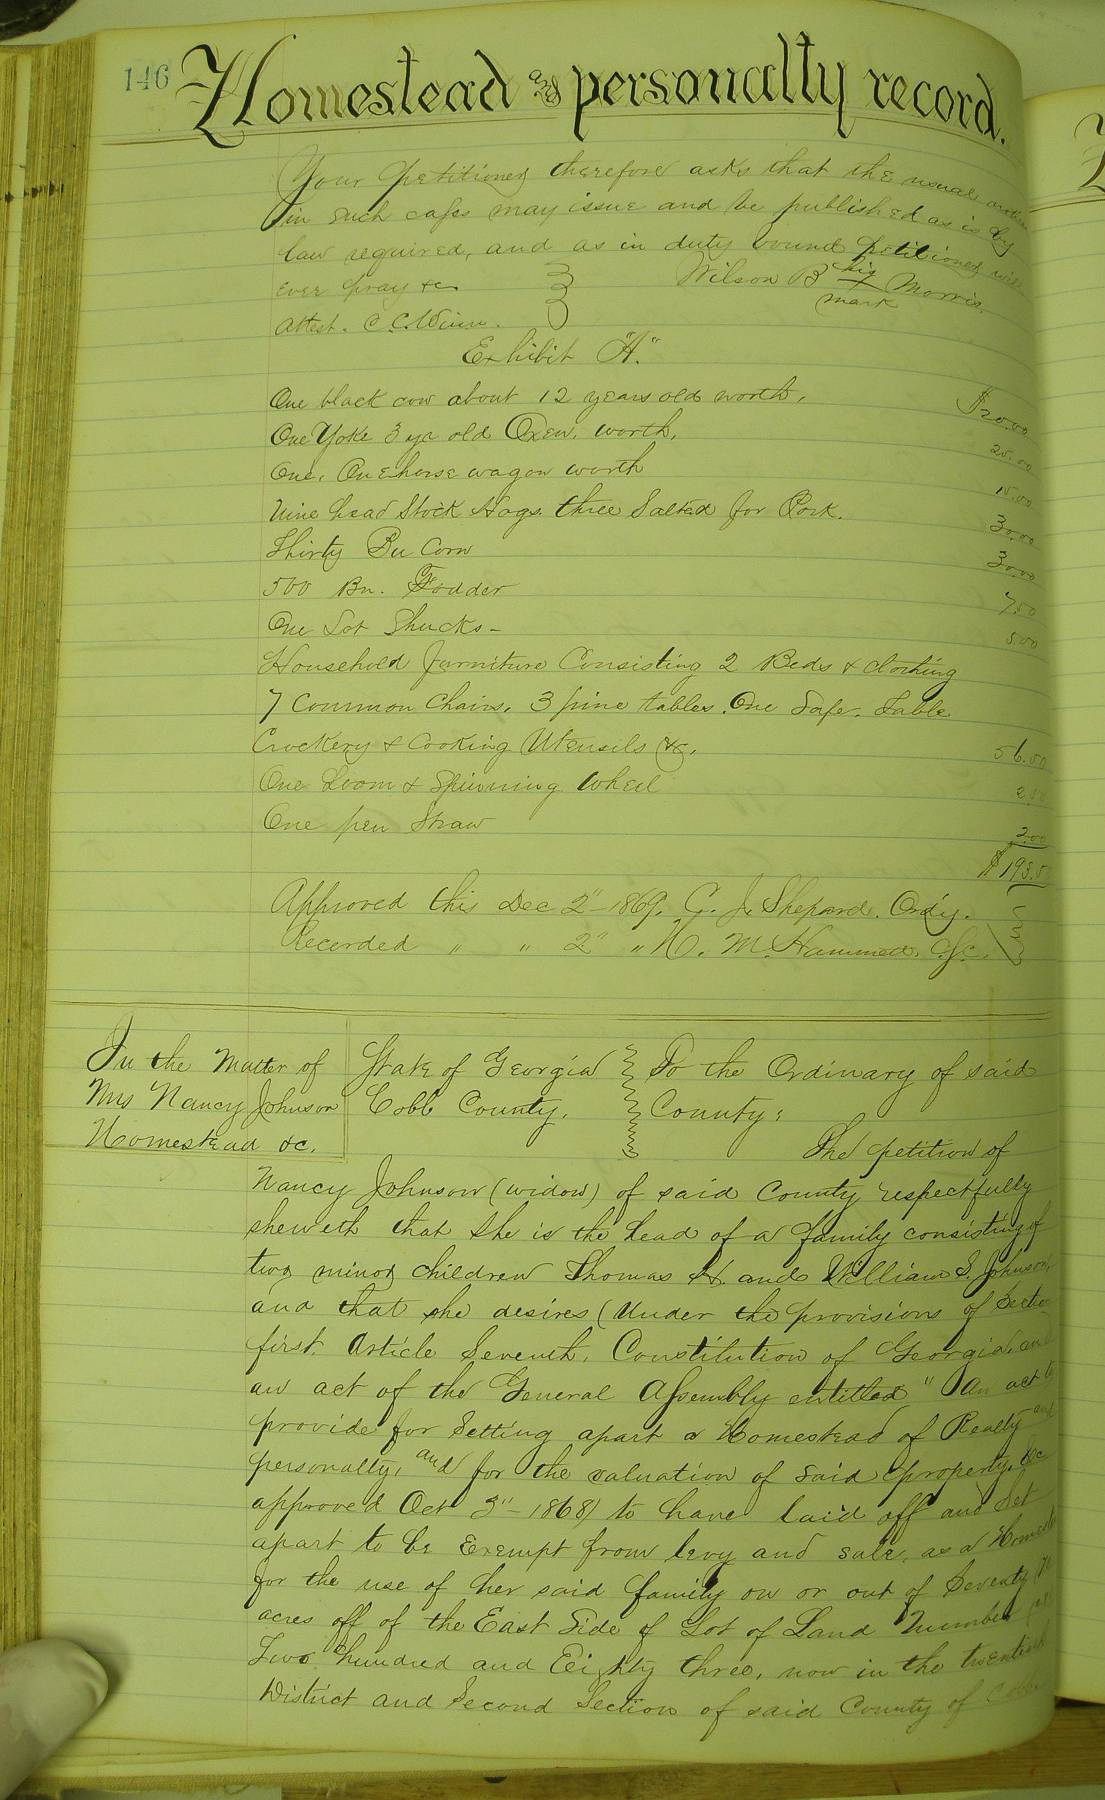 146 Homestead and personalty record.
Your petitioner therefore asks that the usual
in such cases may issue and be published as is by
law required, and as in duty bound petitioner will
ever pray &c Wilson B his Morris.
mark
Attest. C. C. Winn.
Exhibit "A."
One black cow about 12 years old worth, $20.00
One Yoke 3 yr old Oxen, worth, 25.00
One, One horse wagon worth 15.00
Nine head Stock Hogs. three Salted for Pork. 30.00
Thirty Bu Corn 30.00
500 Bn. Fodder 7.50
One Lot Shucks - 5.00
Household furniture Consisting 2 Beds & clothing
7 Common Chairs, 3 pine tables. One Safe. Table
Crockery & Cooking Utensils &c. 56.50
One Loom & Spinning Wheel
One pen Straw 2.00
Approved this Dec 2" - 1869. C. J. Shepard. Ord'y.
Recorded " " 2" " H. M. Hammed. C.S.C.
In the Matter of State of Georgia To the Ordinary of said
Mrs Nancy Johnson Cobb County. County:
Homestead &c. The petition of
Nancy Johnson (widow) of said County respectfully
sheweth that she is the head of a family consisting of
two minor children Thomas H. and William S. Johnson
and that she desires (Under the provisions of Section
first. Article Seventh. Constitution of Georgia, and
an act of the General Assembly entitled "An act to
provide for Setting apart a Homestead of Realty and
personalty, and for the valuation of said property, &c
approved Oct 3" - 1868) to have laid off and Set
apart to be Exempt from levy and sale, as a Homestead
for the use of her said family on or out of Seventy
acres off of the East Side of Lot of Land Number
Two hundred and Eighty three, now in the twentieth
District and Second Section of said County of Cobb